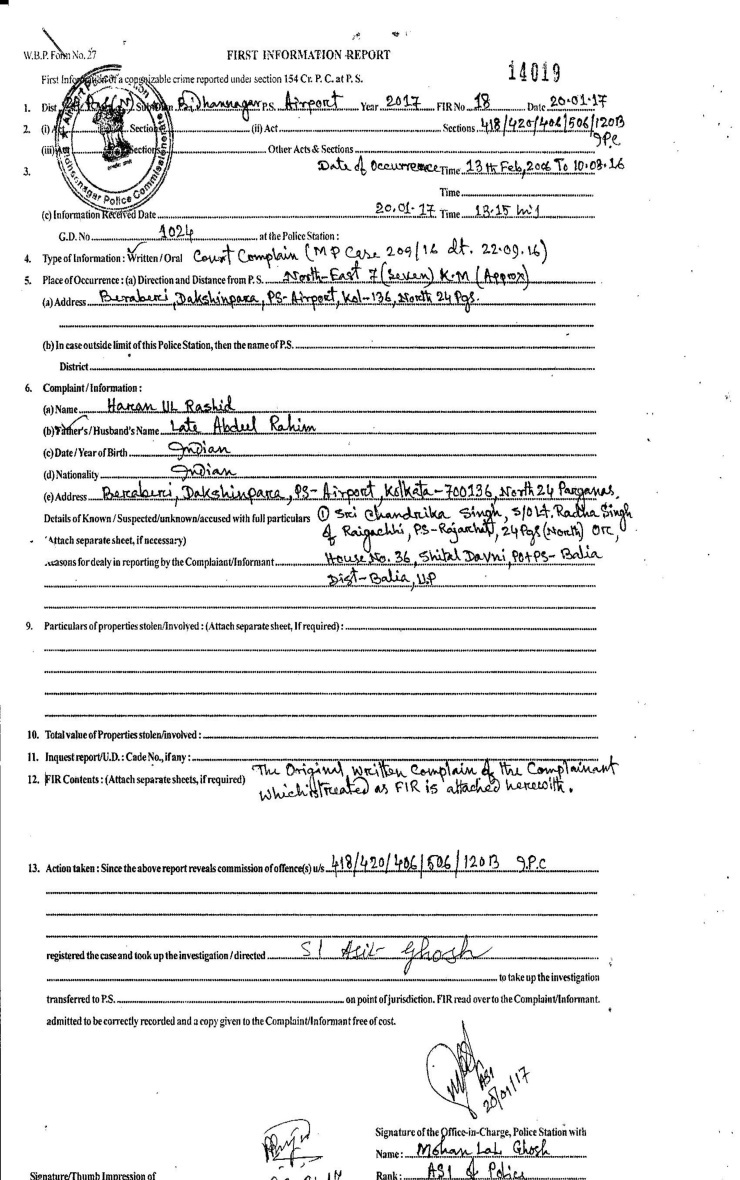 W.B.P. Form No. 27
FIRST INFORMATION REPORT
14019
First Information of a cognizable crime reported under section 154 Cr. P. C. at P. S.
1. Dist. Subdivn Bidhannagar P.S. Airport Year 2017 FIR No 18 Date 20.01.17
2. (i) Section (ii) Act Sections 418/420/406/506/120B
IPC
(iii) Section Other Acts & Sections
3. Date of Occurrence Time 13th Feb, 2006 To 10.08.16
Time
(c) Information Received Date 20.01.17 Time 13.15
G.D. No 1024 at the Police Station :
4. Type of Information : Written / Oral Court Complain (M P Case 209/16 dt. 22.09.16)
5. Place of Occurrence : (a) Direction and Distance from P. S. North-East 7 (Seven) K.M (Approx)
(a) Address Beraberi, Dakshinpara, PS- Airport, Kol-136, North 24 Pgs.
(b) In case outside limit of this Police Station, then the name of P.S.
District
6. Complaint / Information :
(a) Name Harun UL Rashid
(b) Father's / Husband's Name Late Abdul Rahim
(c) Date / Year of Birth Indian
(d) Nationality Indian
(e) Address Beraberi, Dakshinpara, PS- Airport, Kolkata-700136, North 24 Parganas.
Details of Known / Suspected/unknown/accused with full particulars ① Sri Chandrika Singh, S/O Lt. Radha Singh
'Attach separate sheet, if necessary) of Raigachhi, PS-Rajarhat, 24 Pgs (North) Or,
.easons for dealy in reporting by the Complaiant/Informant House No. 36, Shital Davni, PO+PS- Balia
Dist- Balia, U.P
9. Particulars of properties stolen/Involved : (Attach separate sheet, If required) :
10. Total value of Properties stolen/involved :
11. Inquest report/U.D. : Cade No., if any :
12. FIR Contents : (Attach separate sheets, if required) The Original written Complain of the Complainant
which is treated as FIR is attached herewith.
13. Action taken : Since the above report reveals commission of offence(s) u/s 418/420/406/506/120B I.P.C
registered the case and took up the investigation / directed SI Asit Ghosh
to take up the investigation
transferred to P.S. on point of jurisdiction. FIR read over to the Complaint/Informant.
admitted to be correctly recorded and a copy given to the Complaint/Informant free of cost.
ASI
20/01/17
Signature of the Office-in-Charge, Police Station with
Name : Mohan Lal Ghosh
Signature/Thumb Impression of
Rank : ASI of Police